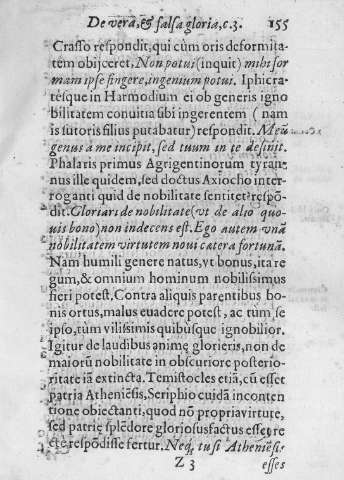 De vera, & falsa gloria, c.3. 155
Crasso respondit, qui cùm oris deformita-
tem obijceret, Non potui (inquit) mihi for
mam ipse fingere, ingenium potui. Iphicra-
tésque in Harmodium ei ob generis igno
bilitatem conuitia sibi ingerentem (nam
is sutoris filius putabatur) respondit. Meũ
genus a me incipit, sed tuum in te desinit.
Phalaris primus Agrigentinorum tyran-
nus ille quidem, sed doctus Axiocho inter-
roganti quid de nobilitate sentiret respõ-
dit. Gloriari de nobilitate (vt de alio quo-
uis bono) non indecens est. Ego autem vnã
nobilitatem virtutem noui cætera fortunã.
Nam humili genere natus, vt bonus, ita re
gum, & omnium hominum nobilissimus
fieri potest. Contra aliquis parentibus bo-
nis ortus, malus euadere potest, ac tum se
ipso, tum vilissimis quibusque ignobilior.
Igitur de laudibus animę glorieris, non de
maiorũ nobilitate in obscuriore posterio-
ritate iã extincta. Temistocles etiã, cũ esset
patria Atheniẽsis, Seriphio cuidã inconten
tione obiectanti, quod nõ propria virtute,
sed patrię splẽdore gloriosus factus esset, re
ctè respõdisse fertur. Neq, tu si Atheniẽsis
Z 3 esses